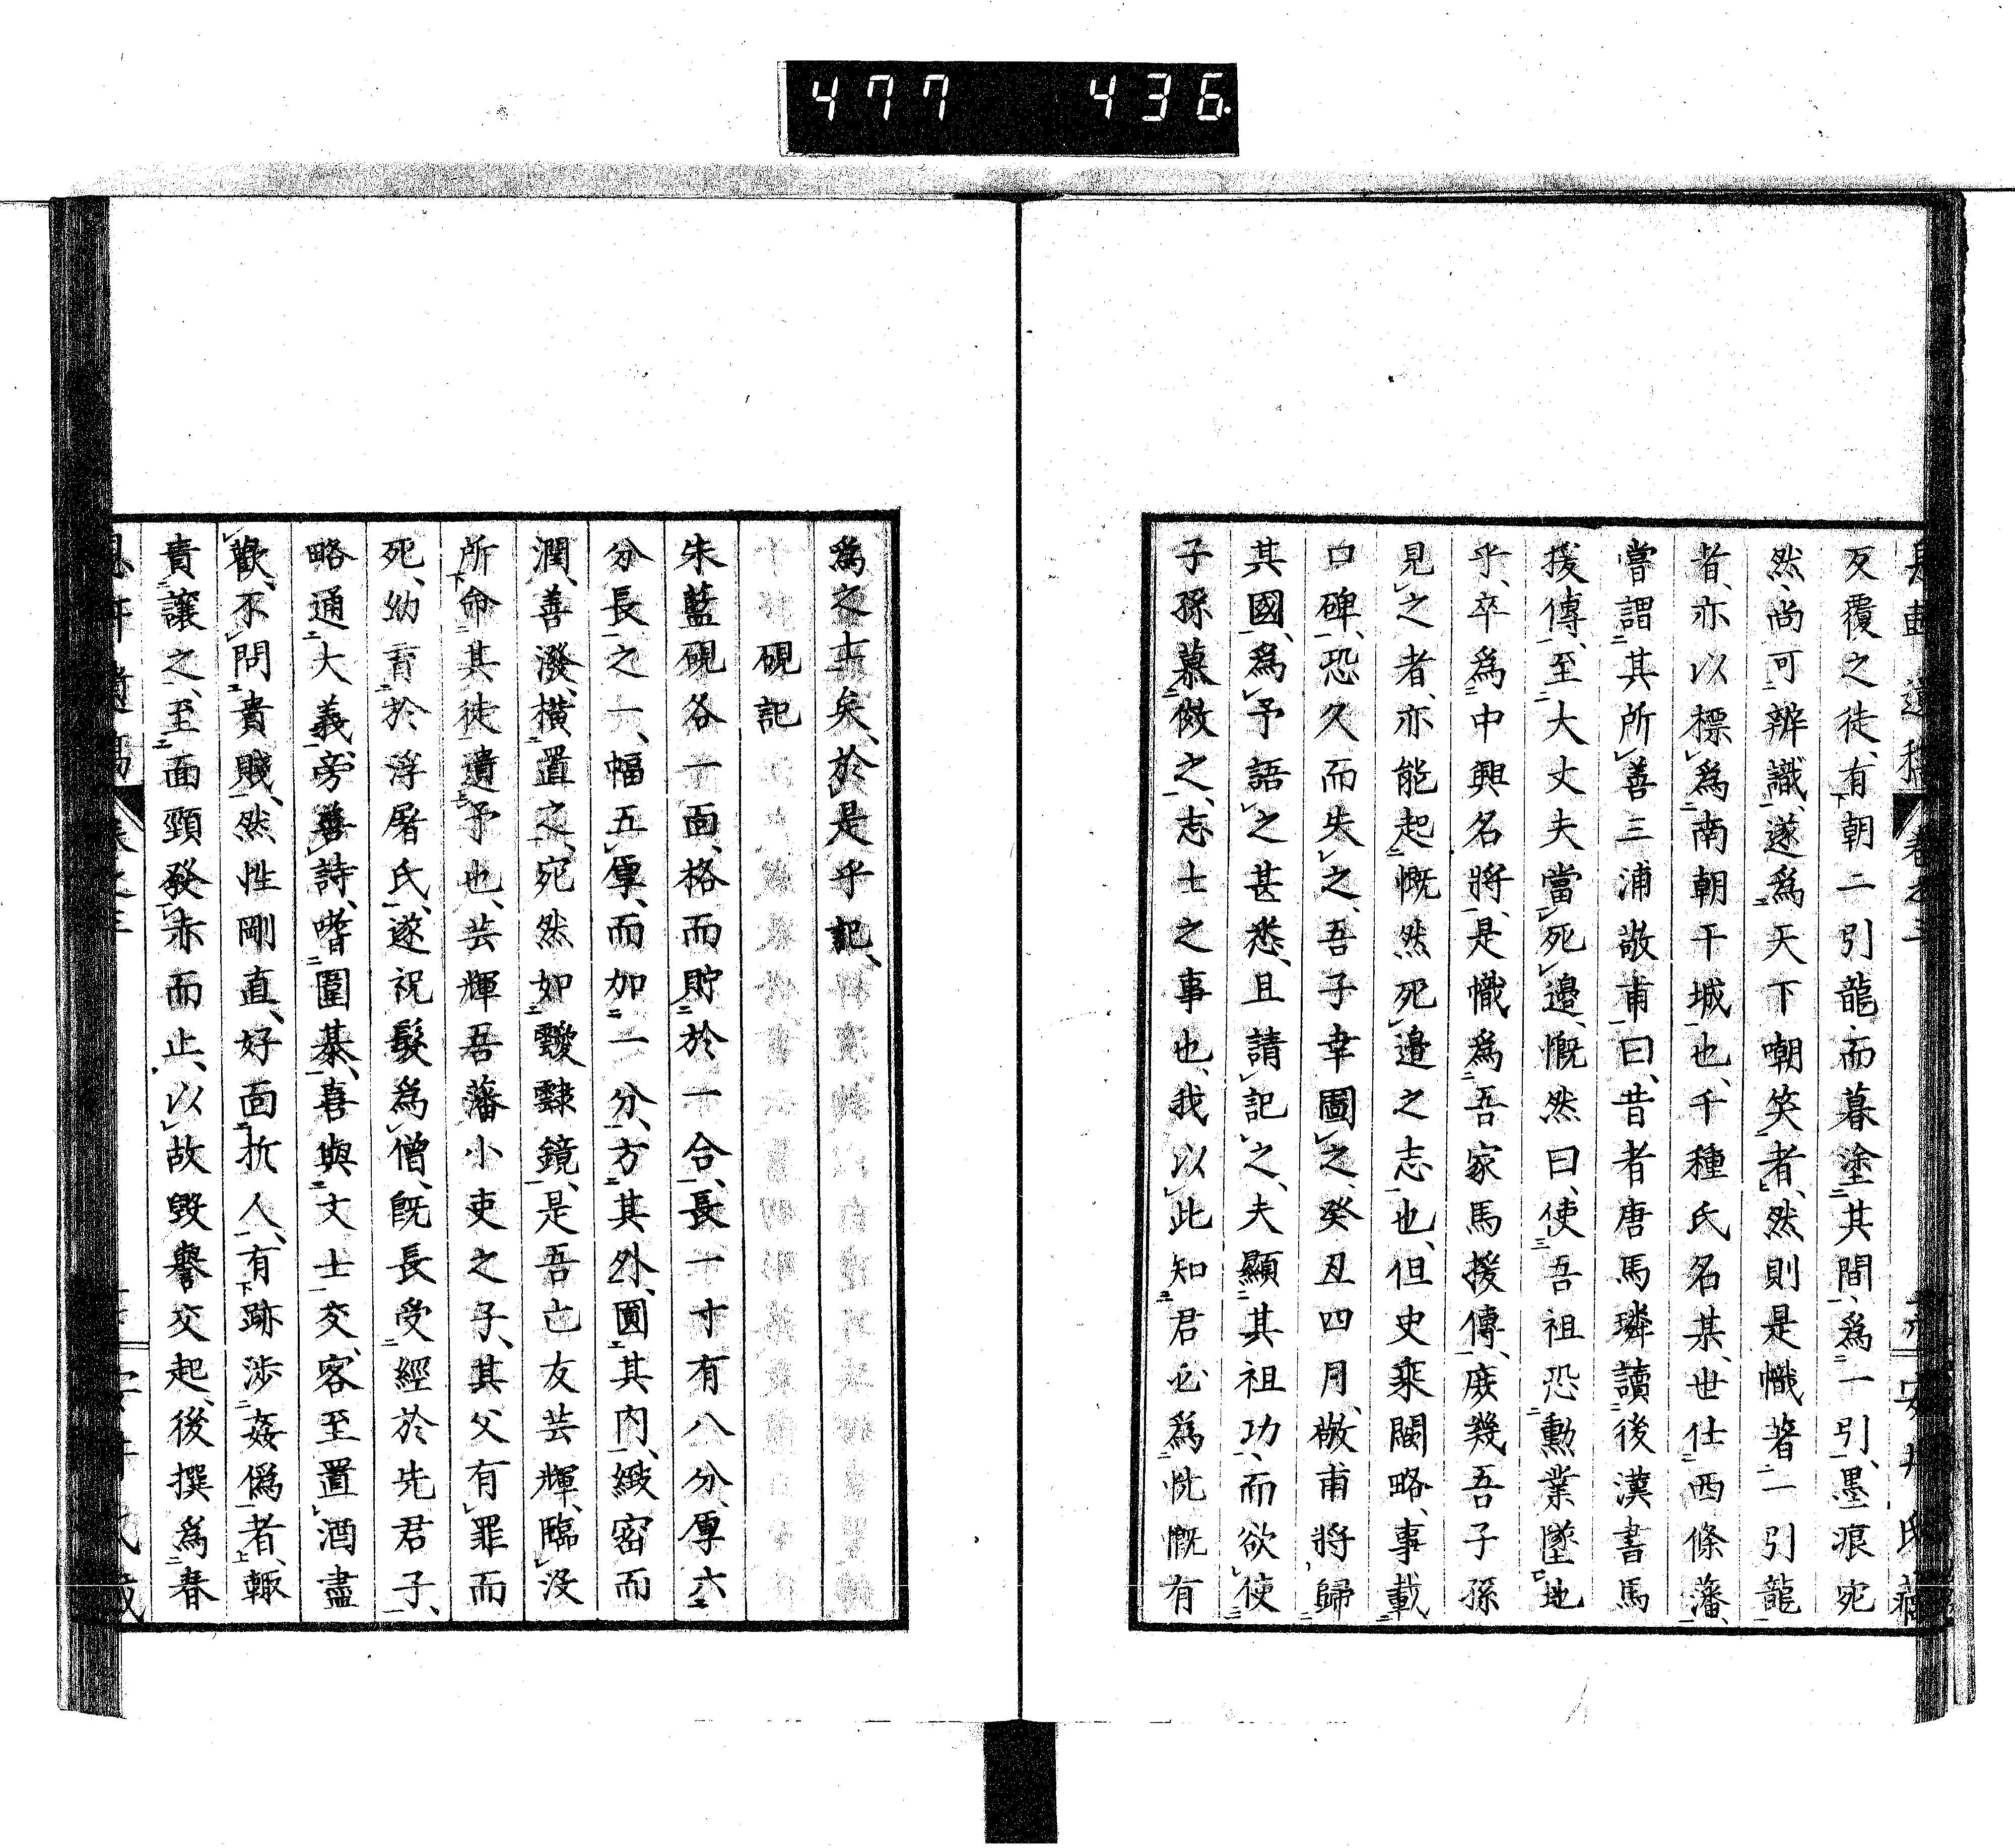 477 436
反覆之徒、有朝二引龍、而暮塗其間、爲一引、墨痕宛
然、尚可辨識、遂爲天下嘲笑者、然則是幟著二引龍
者、亦以標爲南朝干城也、千種氏名某、世仕西條藩、
嘗謂其所善三浦敬甫曰、昔者唐馬璘讀後漢書馬
援傳、至大丈夫當死邊、慨然曰、使吾祖恐勳業墜地
乎、卒爲中興名將、是幟爲吾家馬援傳、庶幾吾子孫
見之者、亦能起慨然死邊之志也、但史乘闕略、事載
口碑、恐久而失之、吾子幸圖之、癸丑四月、敬甫將歸
其國、爲予語之甚悉、且請記之、夫顯其祖功、而欲使
子孫慕傚之、志士之事也、我以此知君必爲忼慨有
爲之士矣、於是乎記、
硯記
朱藍硯各一面、格而貯於一合、長一寸有八分、厚六
分、長之一、幅五厚、而加一分、方其外、圓其内、緻密而
潤、善潑、橫置之、宛然如靉靆鏡、是吾亡友芸輝、臨沒
所命其徒遺予也、芸輝吾藩小吏之子、其父有罪而
死、幼育於浮屠氏、遂祝髮爲僧、既長受經於先君子、
略通大義、旁善詩、嗜圍棊、喜與文士交、客至置酒盡
歡、不問貴賤、然性剛直、好面折人、有跡涉姦僞者、輙
責讓之、至面頸發赤而止、以故毀譽交起、後撰爲春